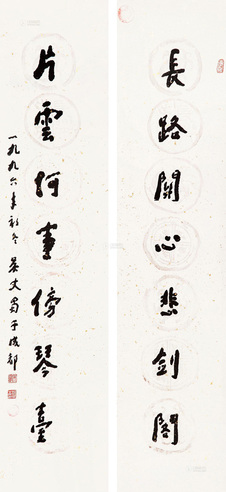 長路關心悲劍閣
片雲何事傍琴臺
一九九六年初冬吳丈蜀于成都